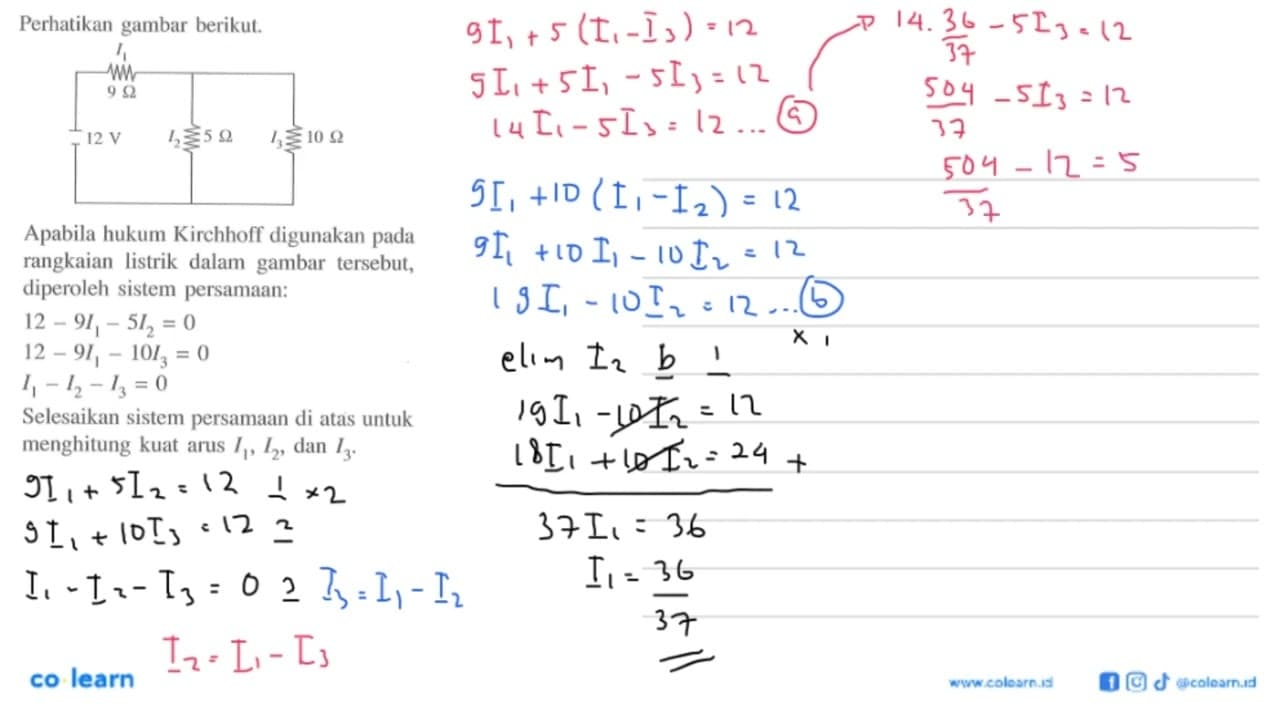 Perhatikan gambar berikut.
I₁
9 Ω
12 V
I₂
5 Ω
I₃
10 Ω
Apabila hukum Kirchhoff digunakan pada
rangkaian listrik dalam gambar tersebut,
diperoleh sistem persamaan:
12 – 9I₁ – 5I₂ = 0
12 – 9I₁ – 10I₃ = 0
I₁ – I₂ – I₃ = 0
Selesaikan sistem persamaan di atas untuk
menghitung kuat arus I₁, I₂, dan I₃.
9I₁ + 5I₂ = 12 1 ×2
9I₁ + 10I₃ = 12 2
I₁ - I₂ - I₃ = 0 3 I₃ = I₁ - I₂
I₂ = I₁ - I₃
9I₁ + 5 (I₁ - I₃) = 12
9I₁ + 5I₁ - 5I₃ = 12
14I₁ - 5I₃ = 12 ... a
9I₁ + 10 (I₁ - I₂) = 12
9I₁ + 10I₁ - 10I₂ = 12
19I₁ - 10I₂ = 12 ... b
× 1
elim I₂ b 1
19I₁ - 10I₂ = 12
18I₁ + 10I₂ = 24 +
37I₁ = 36
I₁ = 36/37
14. 36/37 - 5I₃ = 12
504/37 - 5I₃ = 12
504/37 - 12 = 5
co learn
www.colearn.id
@colearn.id